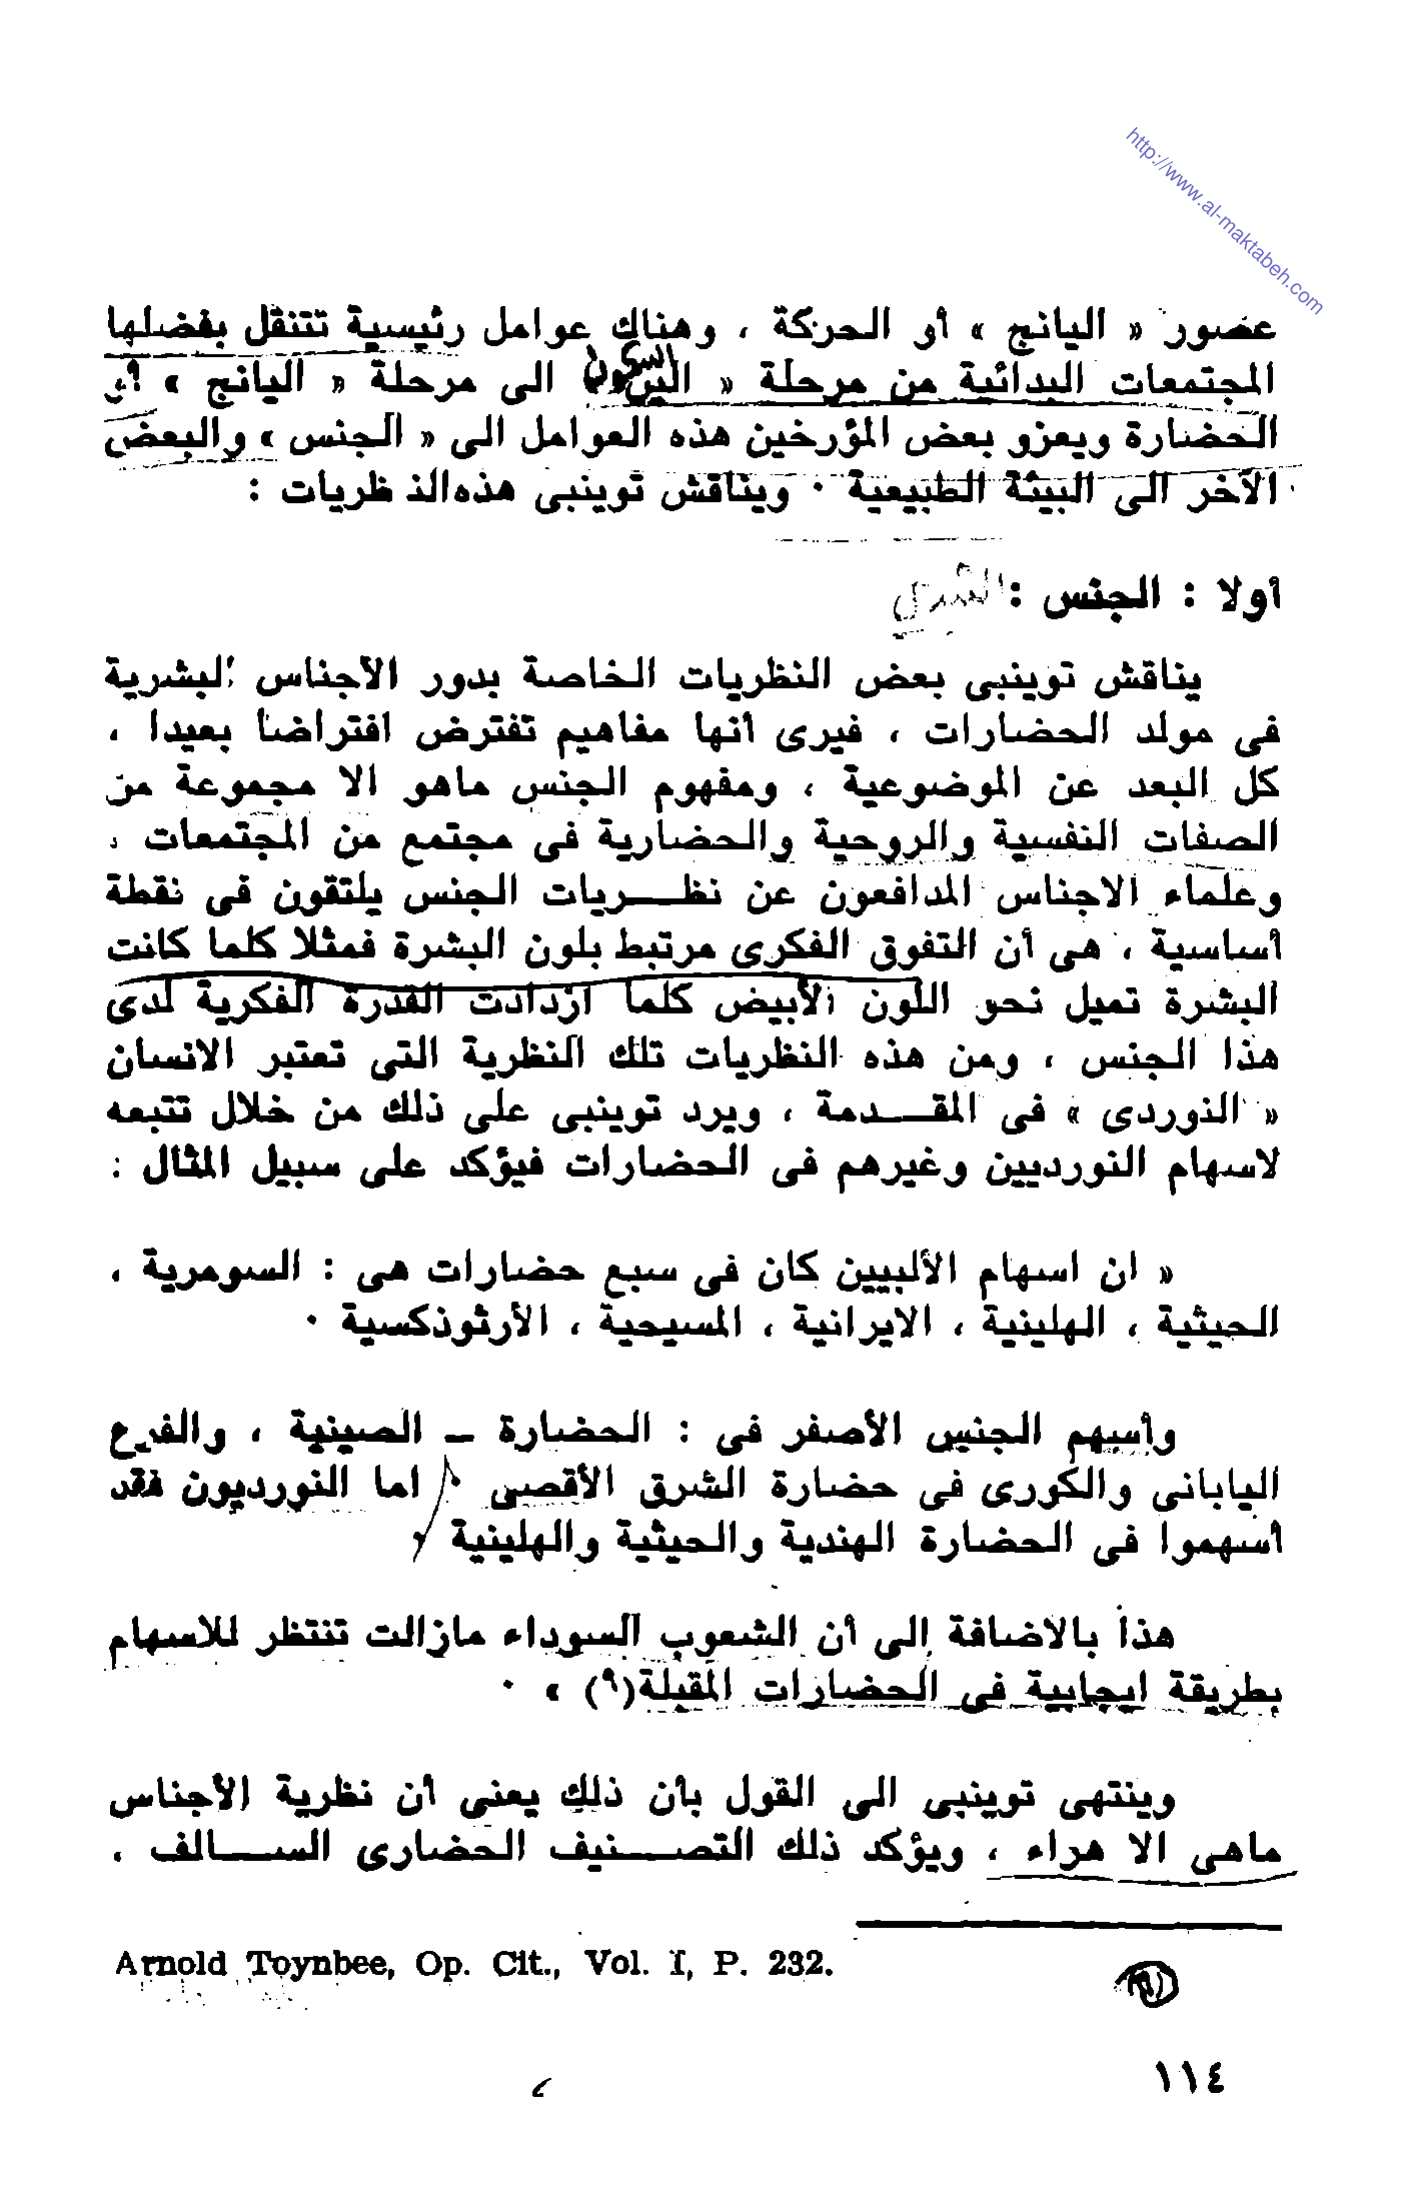 http://www.al-maktabeh.com
عصور « اليانج » أو الحركة ، وهناك عوامل رئيسية تتنقل بفضلها
المجتمعات البدائية من مرحلة « الين السكون الى مرحلة « اليانج » أى
الحضارة ويعزو بعض المؤرخين هذه العوامل الى « الجنس » والبعض
الآخر الى البيئة الطبيعية ٠ ويناقش توينبى هذه النظريات :
أولا : الجنس : البشرى
يناقش توينبى بعض النظريات الخاصة بدور الأجناس البشرية
فى مولد الحضارات ، فيرى أنها مفاهيم تفترض افتراضا بعيدا ،
كل البعد عن الموضوعية ، ومفهوم الجنس ماهو الا مجموعة من
الصفات النفسية والروحية والحضارية فى مجتمع من المجتمعات ،
وعلماء الاجناس المدافعون عن نظـــريات الجنس يلتقون فى نقطة
أساسية ، هى أن التفوق الفكرى مرتبط بلون البشرة فمثلا كلما كانت
البشرة تميل نحو اللون الأبيض كلما ازدادت القدرة الفكرية لدى
هذا الجنس ، ومن هذه النظريات تلك النظرية التى تعتبر الانسان
« النوردى » فى المقـــدمة ، ويرد توينبى على ذلك من خلال تتبعه
لاسهام النورديين وغيرهم فى الحضارات فيؤكد على سبيل المثال :
« ان اسهام الألبيين كان فى سبع حضارات هى : السومرية ،
الحيثية ، الهلينية ، الايرانية ، المسيحية ، الأرثوذكسية ٠
وأسهم الجنس الأصفر فى : الحضارة – الصينية ، والفرع
اليابانى والكورى فى حضارة الشرق الأقصى ٠ اما النورديون فقد
أسهموا فى الحضارة الهندية والحيثية والهلينية ٠
هذا بالاضافة إلى أن الشعوب السوداء مازالت تنتظر للاسهام
بطريقة ايجابية فى الحضارات المقبلة(٩) » ٠
وينتهى توينبى الى القول بأن ذلك يعنى أن نظرية الأجناس
ماهى الا هراء ، ويؤكد ذلك التصـــنيف الحضارى الســـالف ،
(٩) Arnold Toynbee, Op. Cit., Vol. I, P. 232.
١١٤